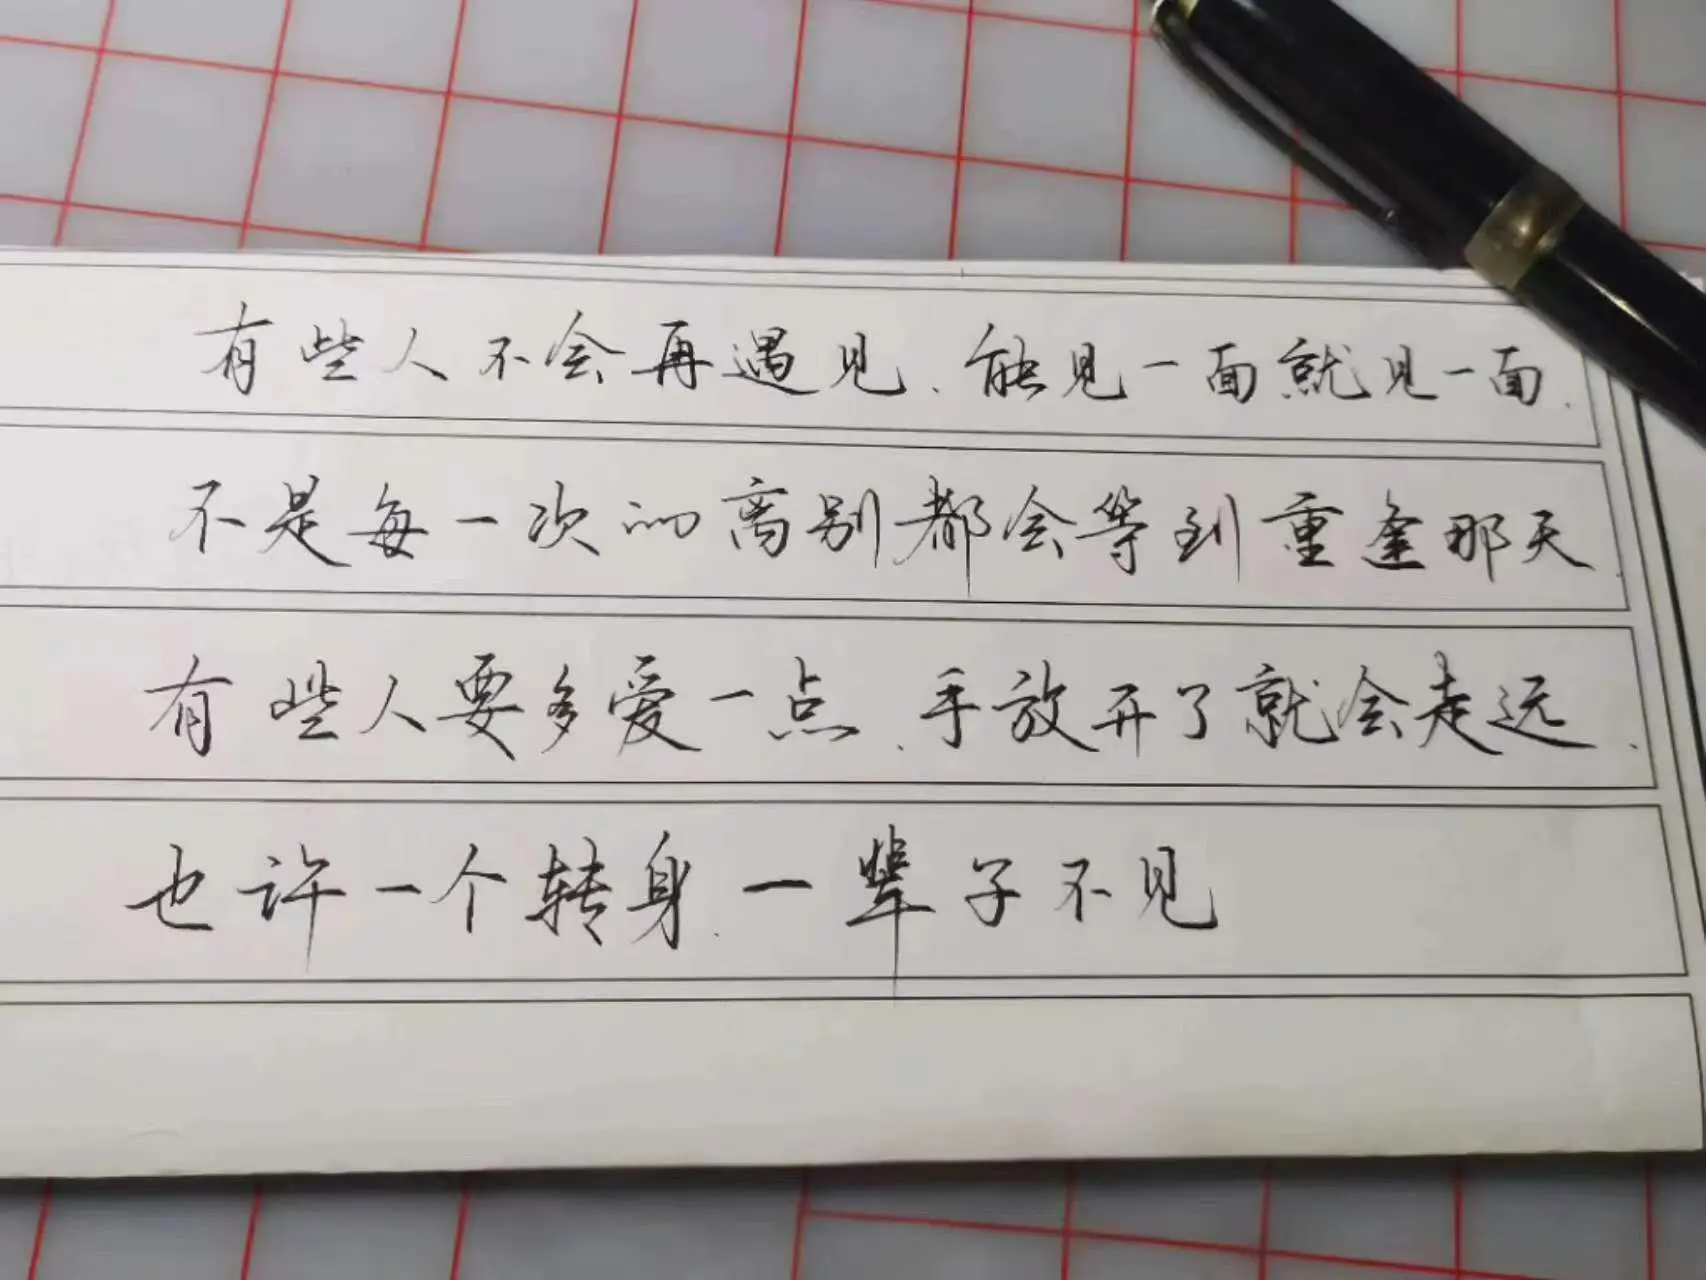 有些人不会再遇见、能见一面就见一面.
不是每一次的离别都会等到重逢那天.
有些人要多爱一点、手放开了就会走远.
也许一个转身.一辈子不见